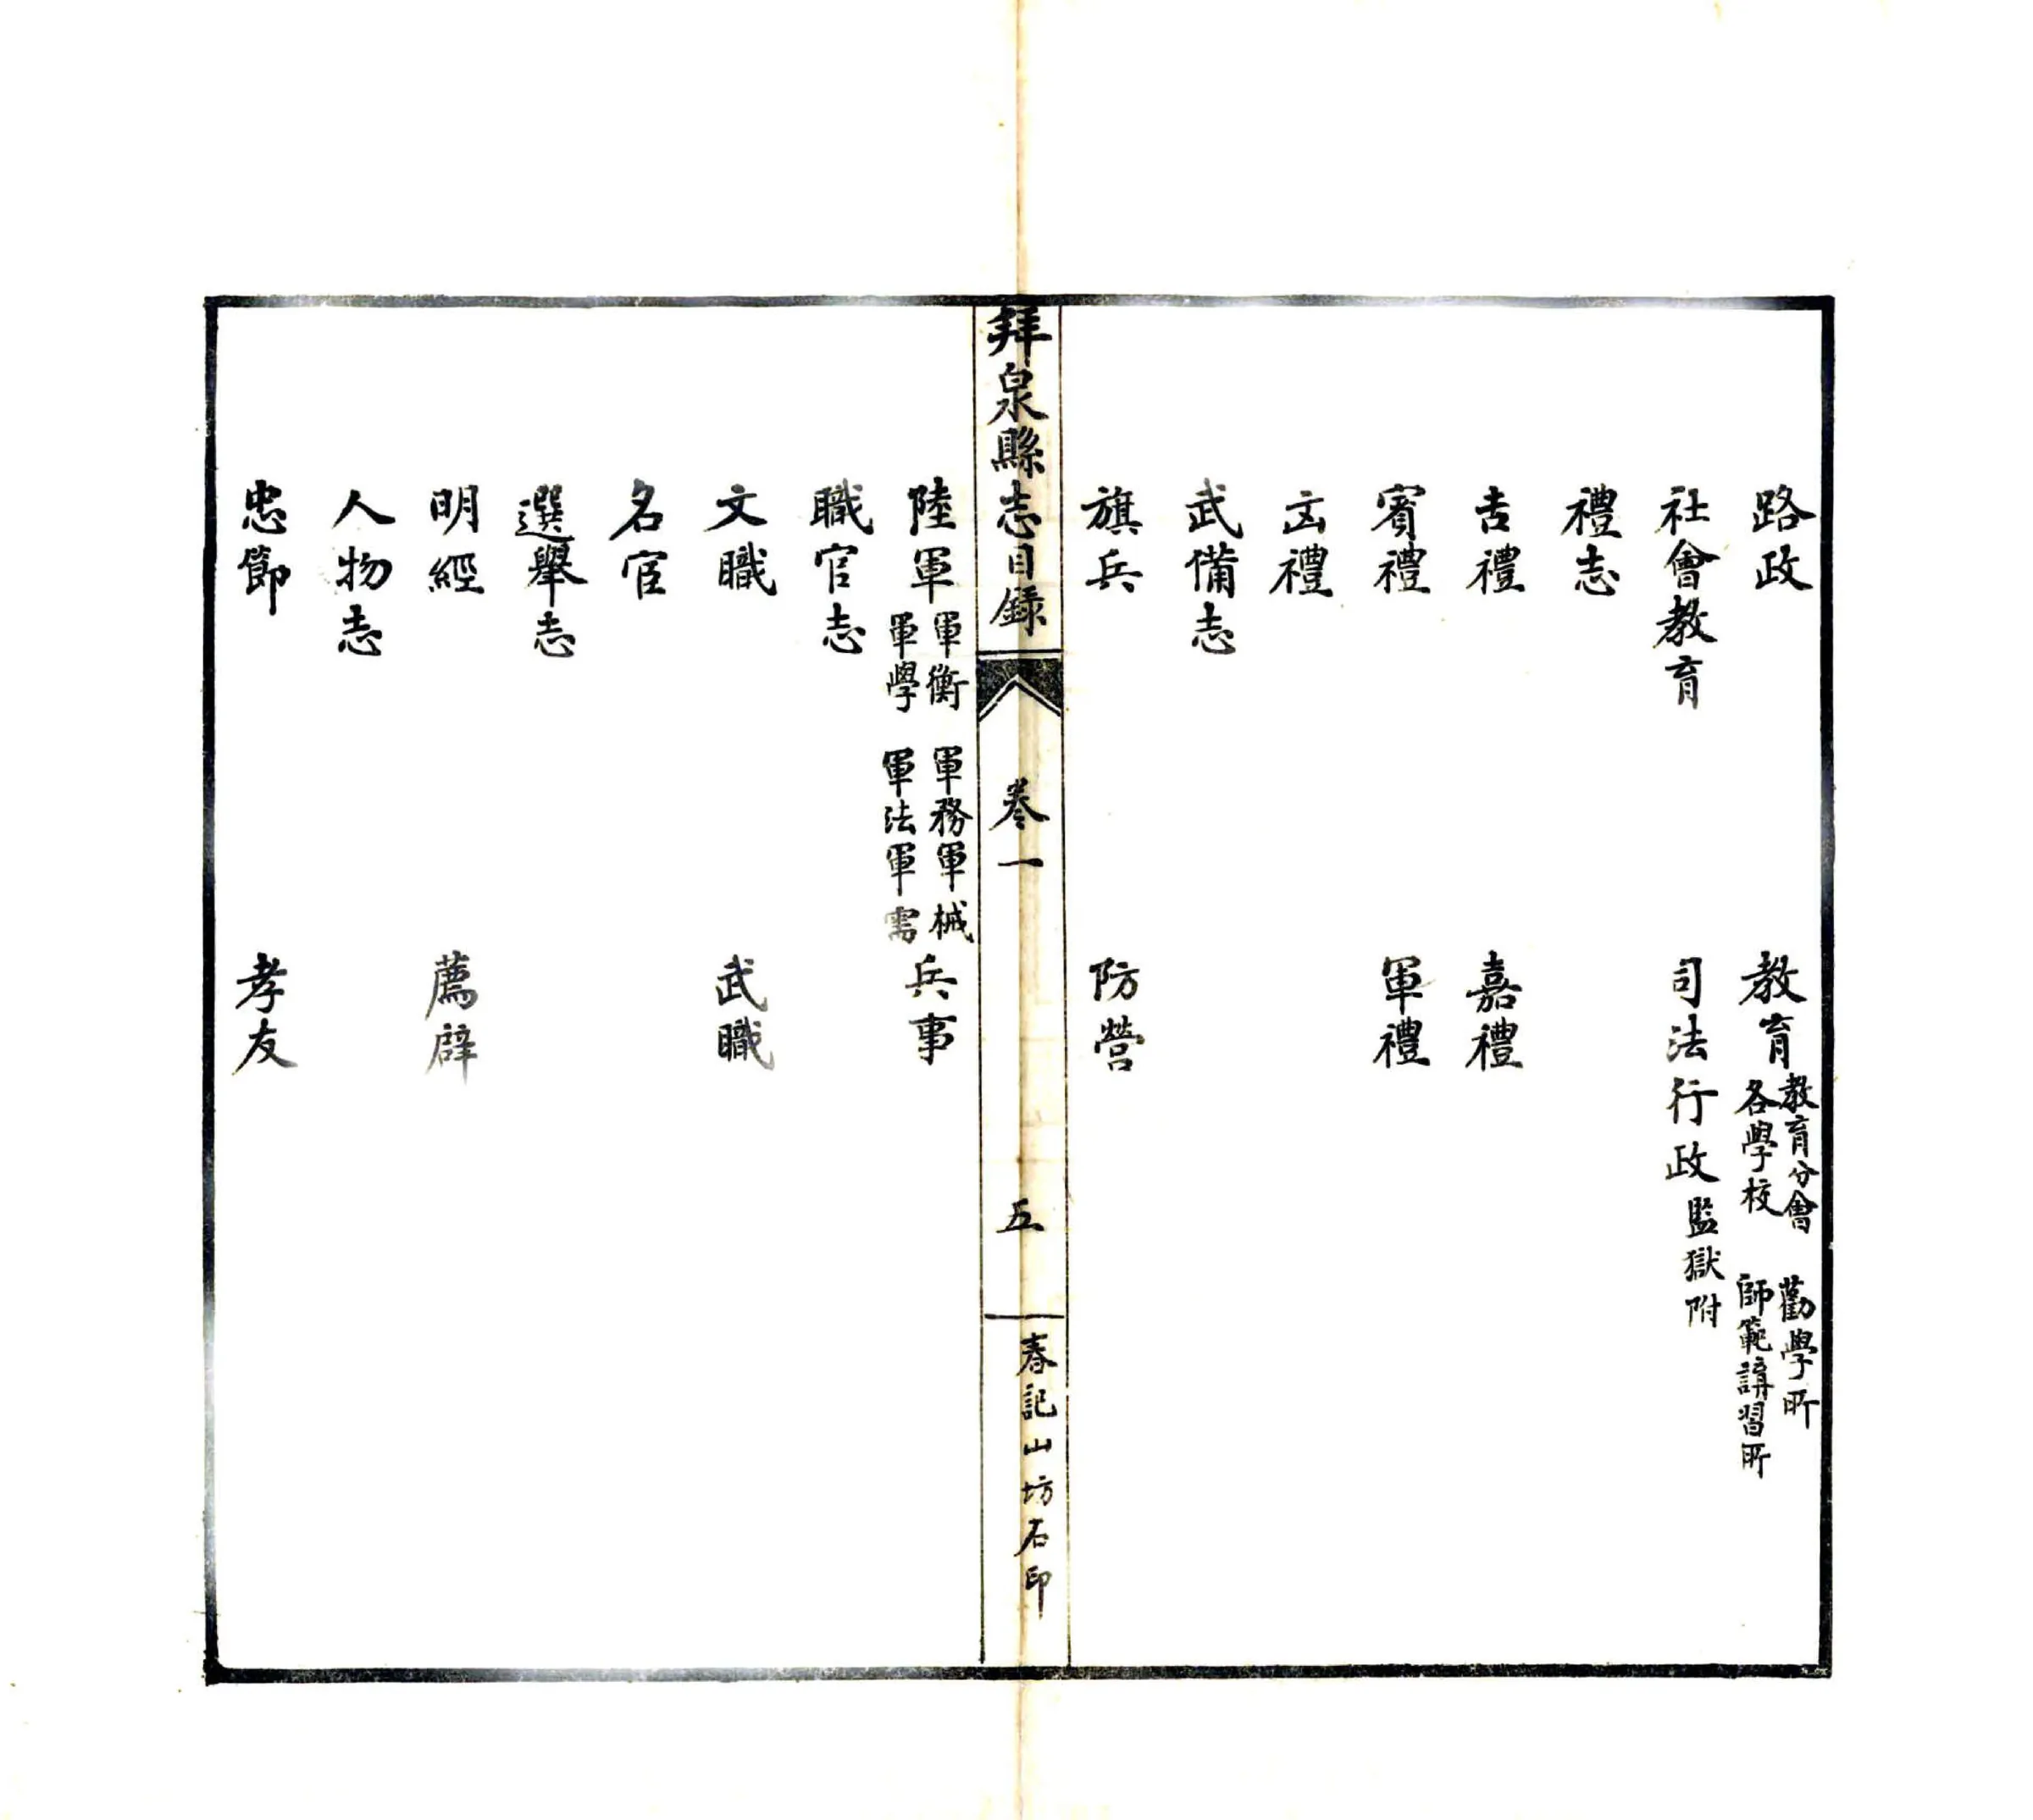 路政　教育　教育分會　勸學所　各學校　師範講習所
社會教育　司法行政　監獄附
禮志
吉禮　嘉禮
賓禮　軍禮
凶禮
武備志
旗兵　防營
拜泉縣志目錄　卷一　五　春記山坊石印
陸軍　軍衡　軍務　軍械　軍學　軍法　軍需　兵事
職官志
文職　武職
名宦
選舉志
明經　薦辟
人物志
忠節　孝友